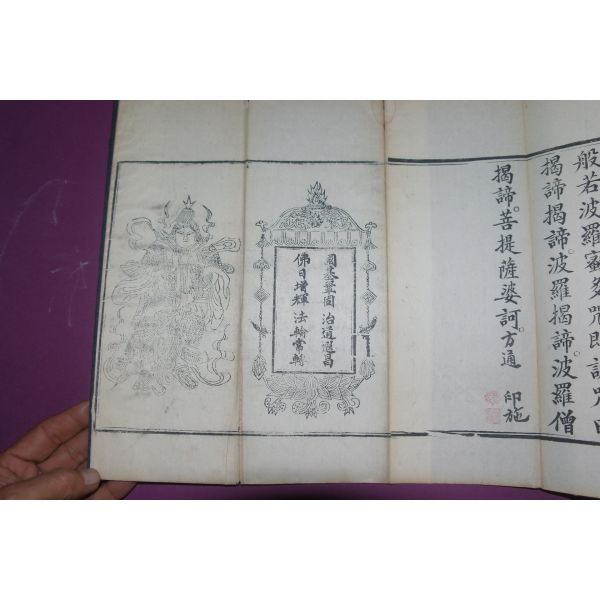 般若波羅蜜多呪即說呪曰
揭諦揭諦波羅揭諦。波羅僧
揭諦。菩提薩婆訶。方通
印施
國基鞏固 治道遐昌
佛日增輝 法輪常轉